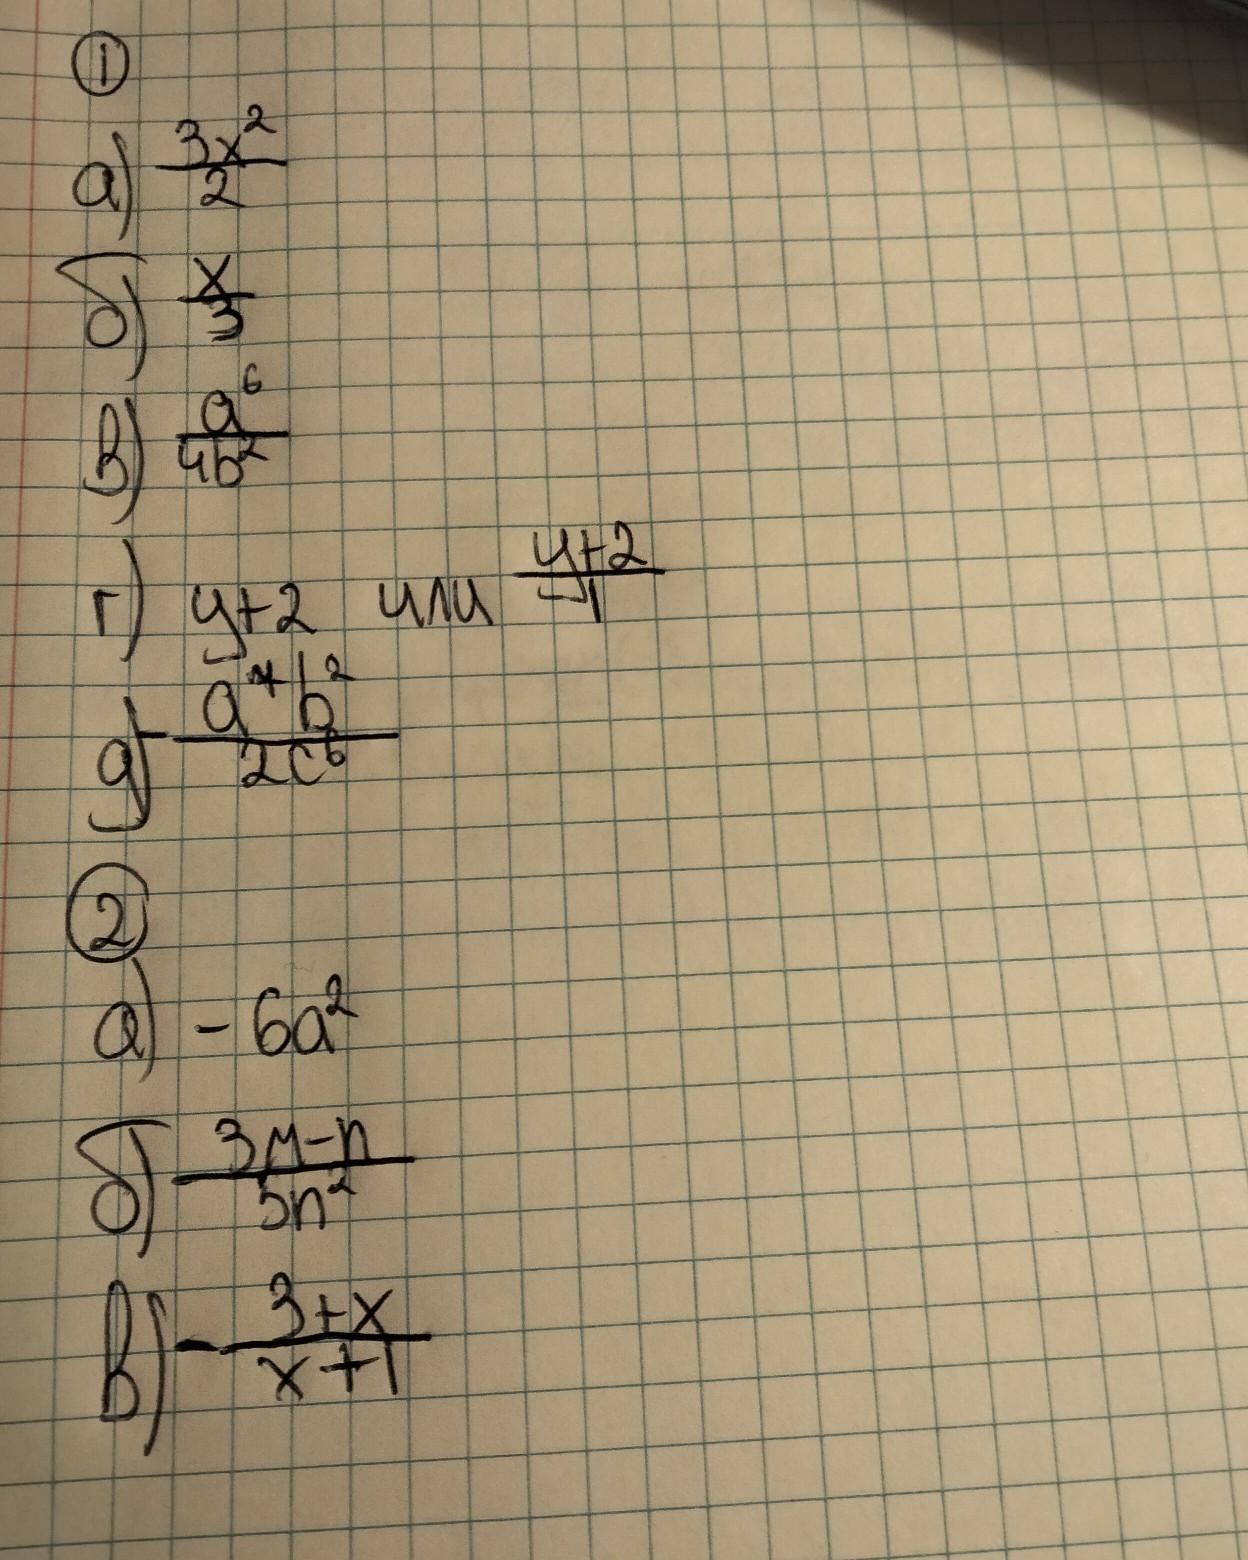 ①
а) 3x²/2
б) x/3
в) a⁶/4b²
г) y+2 или y+2/1
д) -a⁴b²/2c⁶
②
а) - 6a²
б) 3м-n/5n²
в) - 3+x/x+1